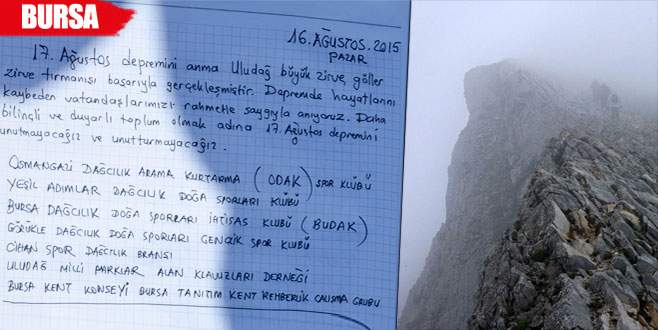 BURSA
16.AĞUSTOS.2015
PAZAR
17. Ağustos depremini anma Uludağ büyük zirve, göller
zirve tırmanışı başarıyla gerçekleşmiştir. Depremde hayatlarını
kaybeden vatandaşlarımızı rahmetle saygıyla anıyoruz. Daha
bilinçli ve duyarlı toplum olmak adına 17.Ağustos depremini
unutmayacağız ve unutturmayacağız.
OSMANGAZİ DAĞCILIK ARAMA KURTARMA (ODAK) SPOR KLÜBÜ
YEŞİL ADIMLAR DAĞCILIK DOĞA SPORLARI KLÜBÜ
BURSA DAĞCILIK DOĞA SPORLARI İHTİSAS KLUBÜ (BUDAK)
GÖRÜKLE DAĞCILIK DOĞA SPORLARI GENÇLİK SPOR KLÜBÜ
CİHAN SPOR DAĞCILIK BRANŞI
ULUDAĞ MİLLİ PARKLAR ALAN KLAVUZLARI DERNEĞİ
BURSA KENT KONSEYİ BURSA TANITIM KENT REHBERLİK ÇALIŞMA GRUBU